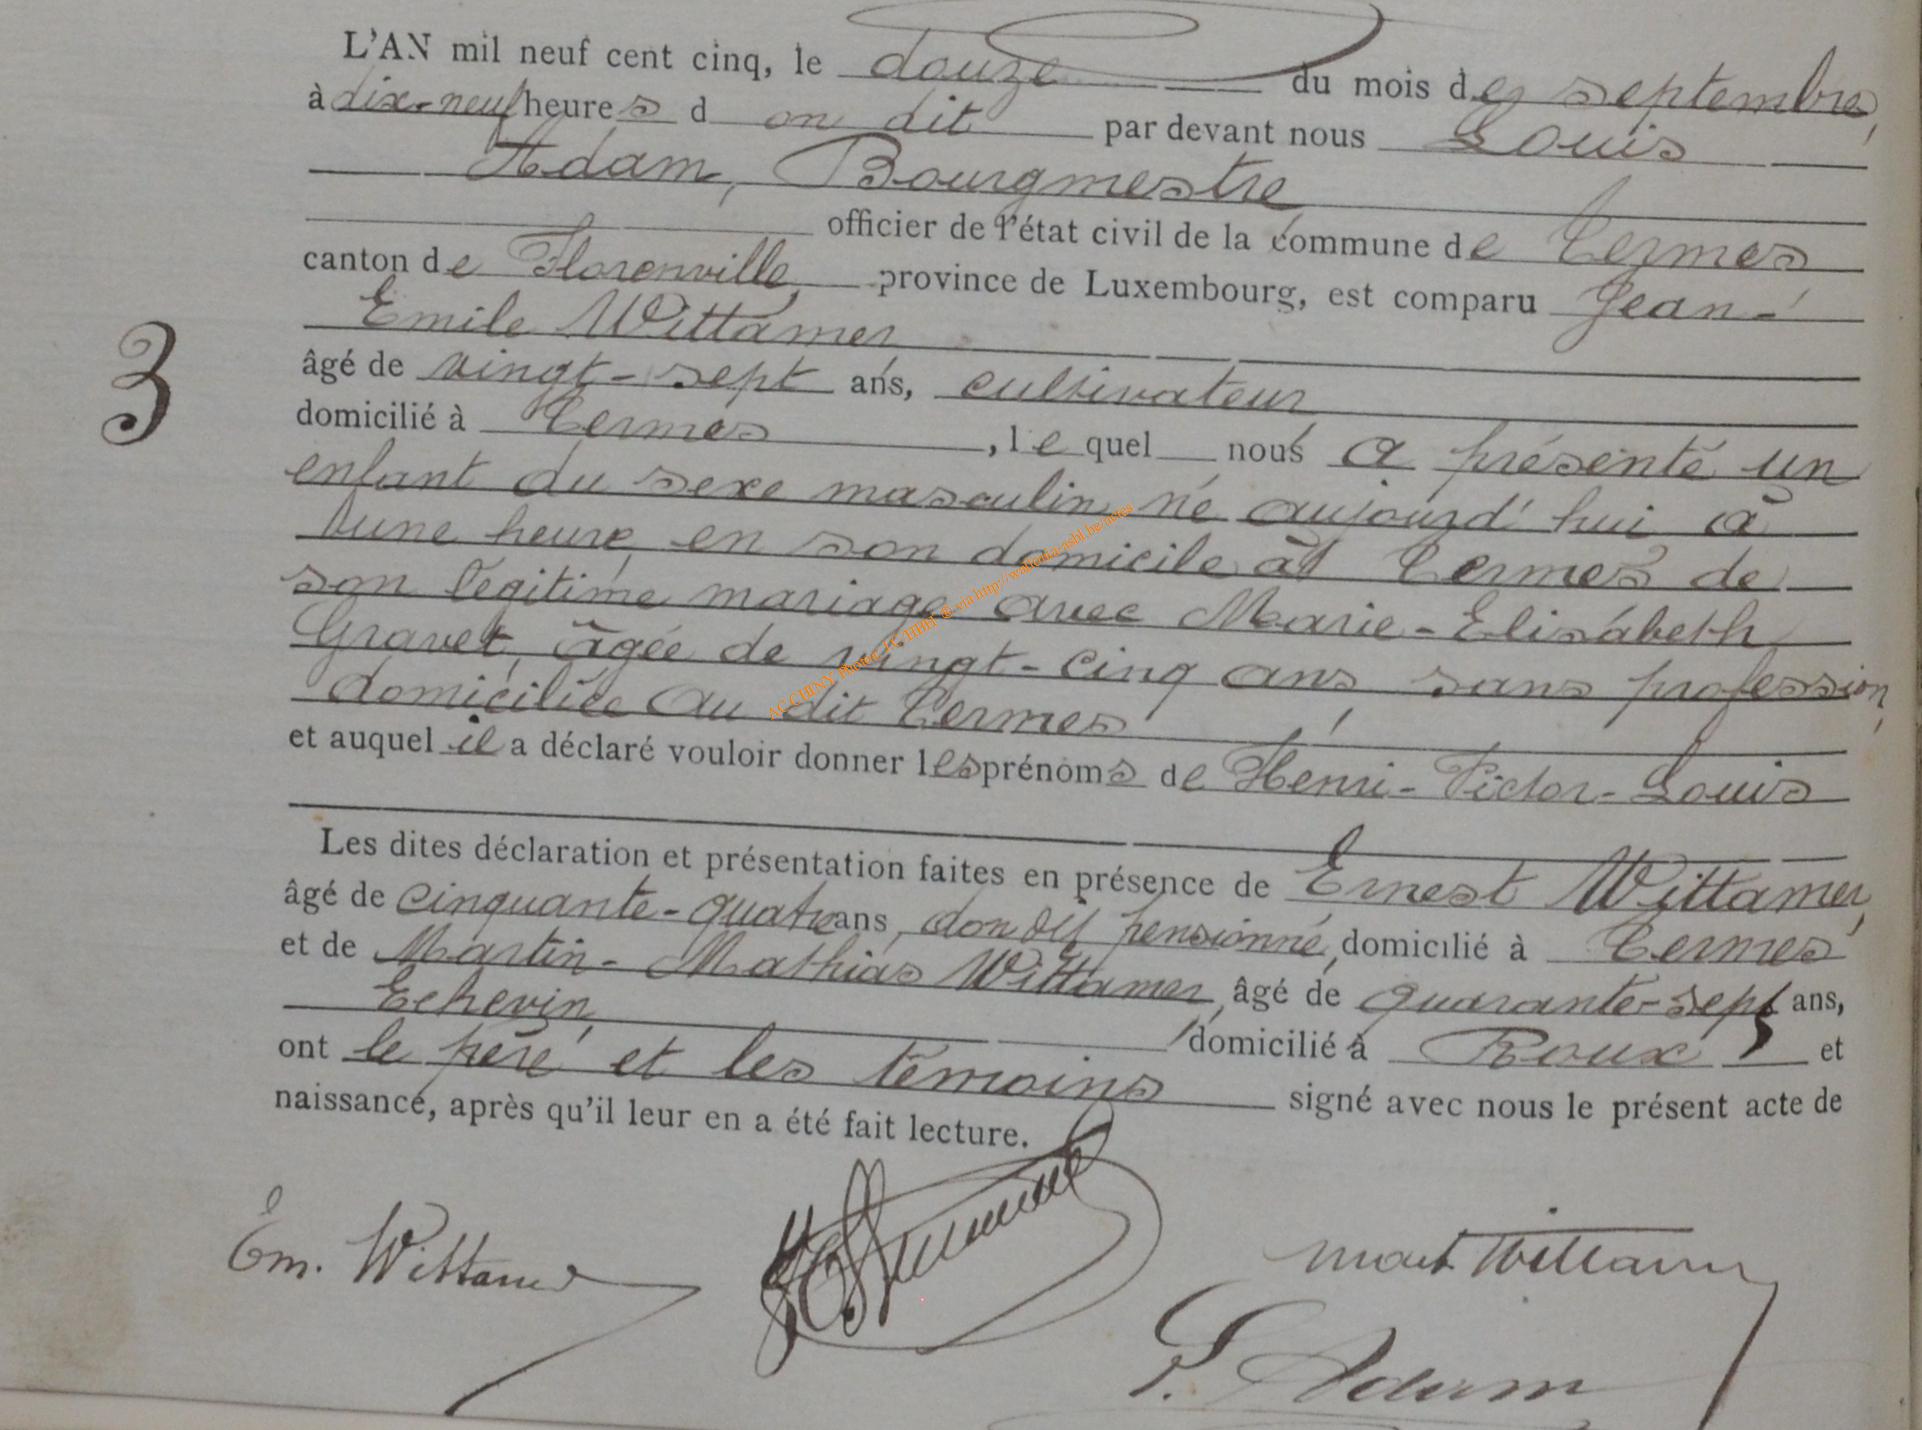 L'AN mil neuf cent cinq, le douze du mois de septembre,
à dix-neuf heures d on dit par devant nous Louis
Adam, Bourgmestre,
officier de l'état civil de la commune de Termes
canton de Florenville, province de Luxembourg, est comparu Jean-
Emile Wittamer
âgé de vingt-sept ans, cultivateur,
domicilié à Termes, lequel nous a présenté un
enfant du sexe masculin, né aujourd'hui à
une heure, en son domicile à Termes, de
son légitime mariage avec Marie-Elisabeth
Gravet, âgée de vingt-cinq ans, sans profession,
domiciliée au dit Termes,
et auquel il a déclaré vouloir donner les prénoms de Henri-Victor-Louis
3
Les dites déclaration et présentation faites en présence de Ernest Wittamer,
âgé de cinquante-quatre ans, pensionné, domicilié à Termes
et de Martin-Mathias Wittamer, âgé de quarante-sept ans,
Echevin, domicilié à Roux, et
ont le père et les témoins signé avec nous le présent acte de
naissance, après qu'il leur en a été fait lecture.
Em. Wittamer
Mart Wittamer
L. Adam
AC CHINY Photos via http://wallonia-asbl.be/actes